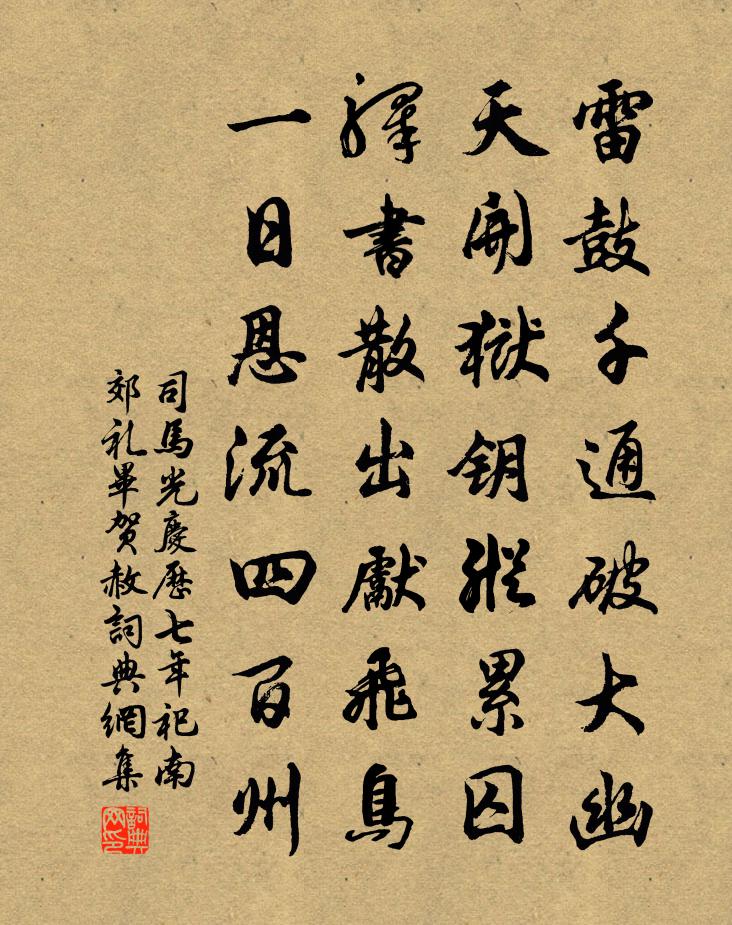 雷鼓千通破大幽
天開獄钥縱累囚
驛書散出獻飛鳥
一日恩流四百州
司馬光慶歷七年祀南
郊礼畢賀赦詞典網集
詞典网印